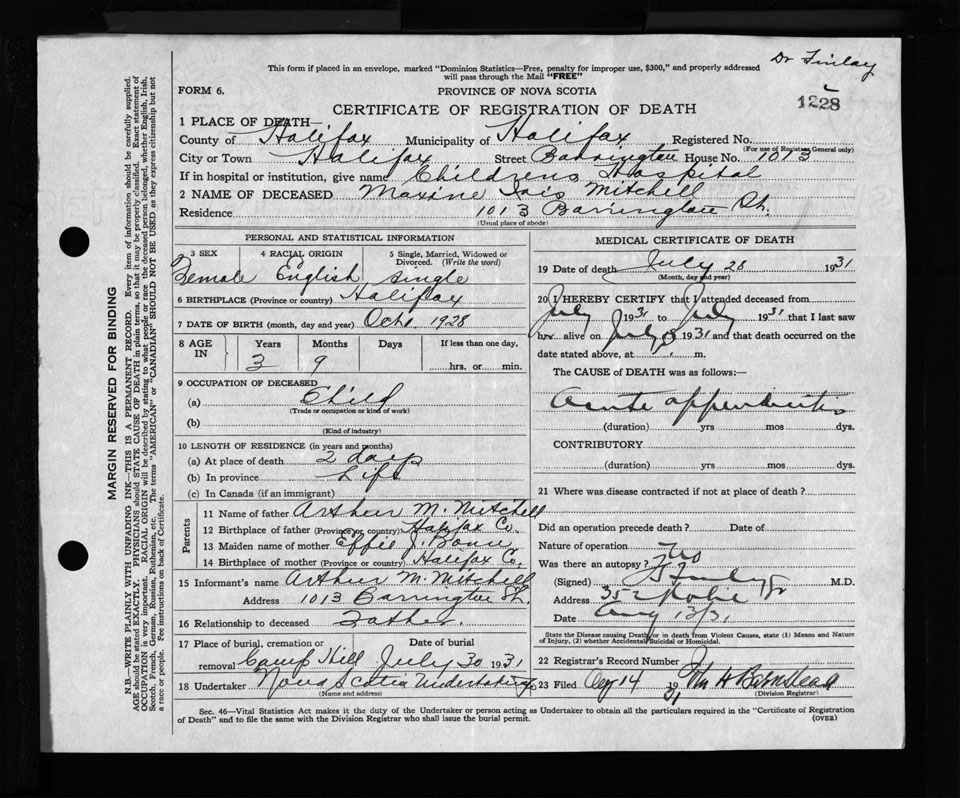 Dr Finlay
This form if placed in an envelope, marked "Dominion Statistics—Free, penalty for improper use, $300," and properly addressed
will pass through the Mail "FREE"
FORM 6.
PROVINCE OF NOVA SCOTIA
1228
CERTIFICATE OF REGISTRATION OF DEATH
1 PLACE OF DEATH—
County of Halifax Municipality of Halifax Registered No.
(For use of Registrar General only)
City or Town Halifax Street Barrington House No. 1013
If in hospital or institution, give name Childrens Hospital
2 NAME OF DECEASED Maxine Lois Mitchell
Residence 1013 Barrington St.
(Usual place of abode)
PERSONAL AND STATISTICAL INFORMATION
3 SEX 4 RACIAL ORIGIN 5 Single, Married, Widowed or Divorced. (Write the word)
Female English single
6 BIRTHPLACE (Province or country) Halifax
7 DATE OF BIRTH (month, day and year) Oct. 1928
8 AGE IN Years Months Days If less than one day,
3 9 hrs. or min.
9 OCCUPATION OF DECEASED
(a) Child
(Trade or occupation or kind of work)
(b)
(Kind of industry)
10 LENGTH OF RESIDENCE (in years and months)
(a) At place of death 2 days
(b) In province Life
(c) In Canada (if an immigrant)
Parents
11 Name of father Arthur M. Mitchell
12 Birthplace of father (Province or country) Halifax Co.
13 Maiden name of mother Effie J.
14 Birthplace of mother (Province or country) Halifax Co.
15 Informant's name Arthur M. Mitchell
Address 1013 Barrington St.
16 Relationship to deceased Father.
17 Place of burial, cremation or removal Date of burial
Camp Hill July 30 1931
18 Undertaker Nova Scotia Undertaking
(Name and address)
MEDICAL CERTIFICATE OF DEATH
19 Date of death July 28 1931
(Month, day and year)
20 I HEREBY CERTIFY that I attended deceased from
July 1931 to July 1931 that I last saw
her alive on July 1931 and that death occurred on the
date stated above, at m.
The CAUSE of DEATH was as follows:—
Acute appendicitis
(duration) yrs mos dys.
CONTRIBUTORY
(duration) yrs mos dys.
21 Where was disease contracted if not at place of death?
Did an operation precede death? Date of
Nature of operation
Was there an autopsy? no
(Signed) Finlay M.D.
Address 352 Robie St
Date Aug 13/31
State the Disease causing Death, or in death from Violent Causes, state (1) Means and Nature
of Injury, (2) whether Accidental, Suicidal or Homicidal.
22 Registrar's Record Number
23 Filed Aug 14 1931
(Division Registrar)
Sec. 46—Vital Statistics Act makes it the duty of the Undertaker or person acting as Undertaker to obtain all the particulars required in the "Certificate of Registration
of Death" and to file the same with the Division Registrar who shall issue the burial permit.
(OVER)
MARGIN RESERVED FOR BINDING
N.B.—WRITE PLAINLY WITH UNFADING INK—THIS IS A PERMANENT RECORD. Every item of information should be carefully supplied.
AGE should be stated EXACTLY. PHYSICIANS should STATE CAUSE OF DEATH in plain terms, so that it may be properly classified. Exact statement of
OCCUPATION is very important. RACIAL ORIGIN will be described by stating to what people or race the deceased person belonged, whether English, Irish,
Scotch, French, German, Russian, Ruthenian, etc. The terms "AMERICAN" or "CANADIAN" SHOULD NOT BE USED as they express citizenship but not
a race or people. See instructions on back of Certificate.